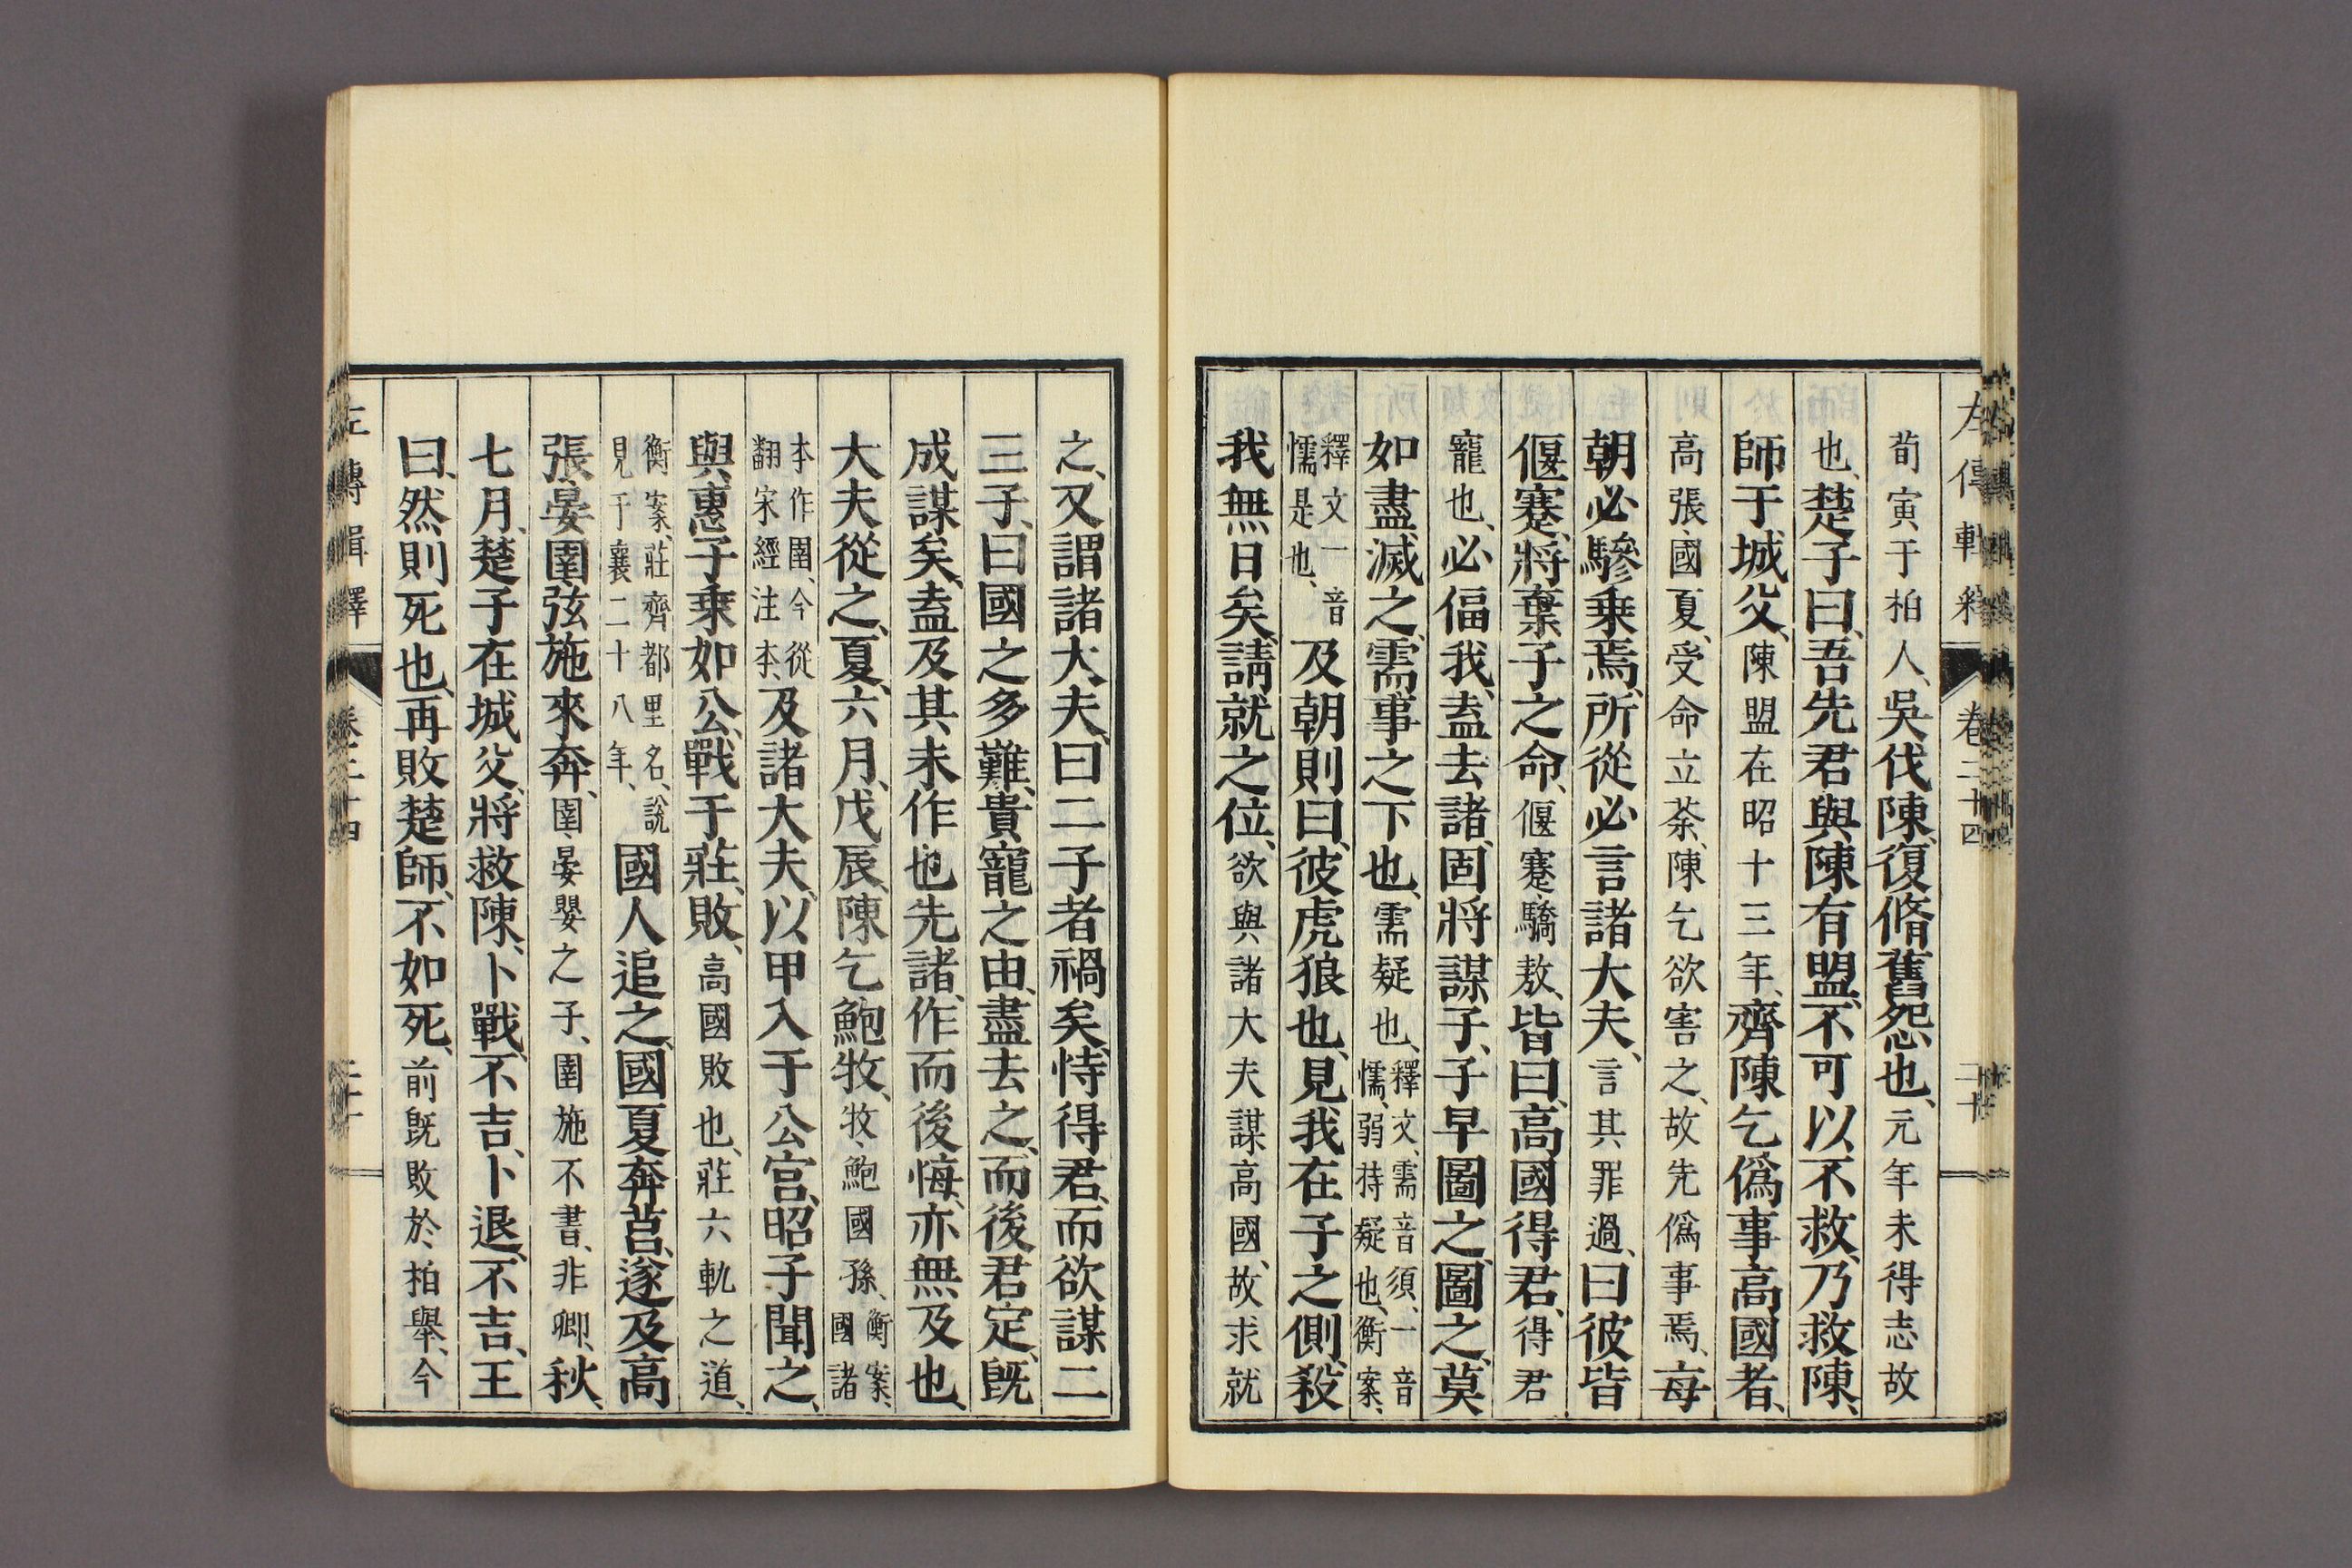 荀寅于柏人、吳伐陳、復脩舊怨也、元年未得志故
也、楚子曰、吾先君與陳有盟、不可以不救、乃救陳、
師于城父、陳盟在昭十三年、齊陳乞僞事高國者、
高張、國夏、受命立荼、陳乞欲害之、故先僞事焉、每
朝必驂乗焉、所從必言諸大夫、言其罪過、曰彼皆
偃蹇、將棄子之命、偃蹇、驕敖、皆曰、高國得君、得君
寵也、必偪我、盍去諸、固將謀子、子早圖之、圖之、莫
如盡滅之、需事之下也、需疑也、釋文、需音須、一音懦、弱持疑也、衡案、
釋文一音懦是也、及朝則曰、彼虎狼也、見我在子之側、殺
我無日矣、請就之位、欲與諸大夫謀高國、故求就
之、又謂諸大夫、曰二子者禍矣、恃得君、而欲謀二
三子、曰國之多難、貴寵之由、盡去之、而後君定、既
成謀矣、盍及其未作也先諸、作而後悔、亦無及也、
大夫從之、夏、六月、戊辰、陳乞鮑牧、牧、鮑國孫、衡案、國諸
本作圉、今從翻宋經注本、及諸大夫、以甲入于公宮、昭子聞之、
與惠子乗如公、戰于莊、敗、高國敗也、莊六軌之道、
衡案、莊齊都里名、說見于襄二十八年、國人追之、國夏奔莒、遂及高
張、晏圉、弦施來奔、圉、晏嬰之子、圉施不書、非卿、秋、
七月、楚子在城父、將救陳、卜戰、不吉、卜退、不吉、王
曰、然則死也、再敗楚師、不如死、前既敗於柏舉、今
左傳輯釋